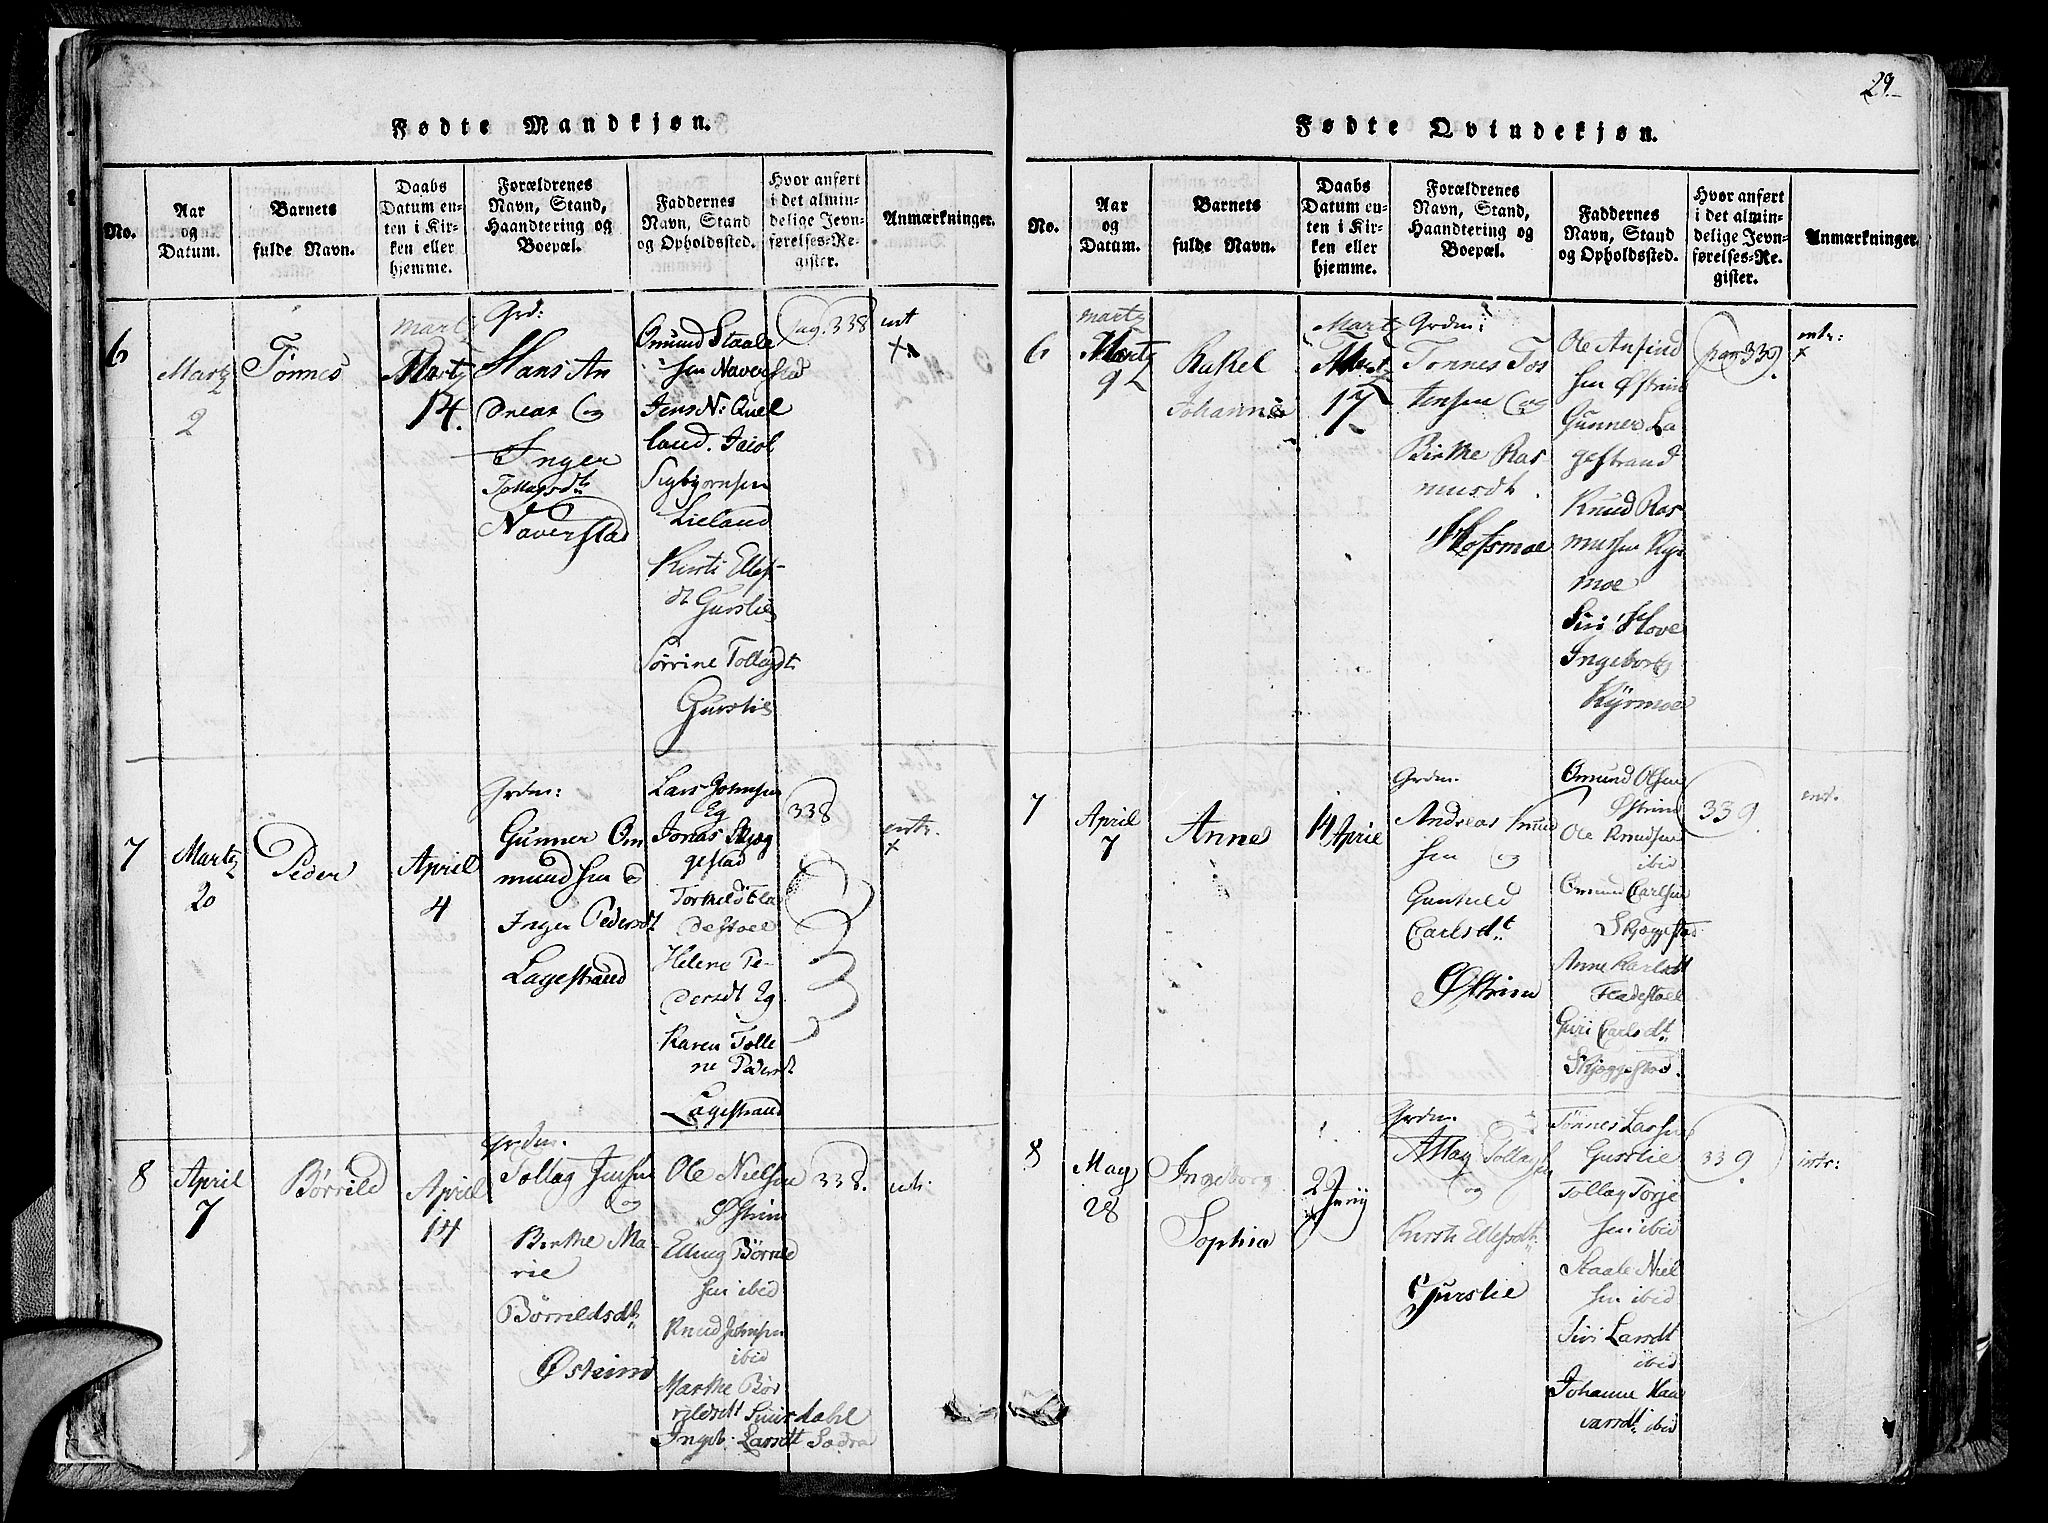 29.
Fødte Mandkjøn.
No.
Aar
og
Datum.
Barnets
fulde Navn.
Daabs
Datum en-
ten i Kir-
ken eller
hjemme.
Forældrenes
Navn, Stand,
Haandtering og
Boepæl.
Faddernes
Navn, Stand
og Opholdssted.
Hvor anført
i det almin-
delige Jevn-
førelses-Re-
gister.
Anmærkninger.
6
Martz
2
Tønnes
Martz
Martz
14.
Grd:
Hans An
dreas og
Inger
Tollagsdt
Naverstad
Omund Staale
sen Naverstad
Jens N: Quel
land. Jacob
Sigbjørnsen
Lieland
Kirsti Ellefs
dt Gurslie
Sørrine Tollagdt
Gurslie
pag. 338
int
x
7
Martz
20
Peder
April
4
Grdm:
Gunner Om
mundsen og
Inger Pedersdt
Lagestrand
Lars Johnsen
Eg
Jonas Skjæg
gestad
Torkeld Fla
destoel
Helene Pe-
dersdt Eg
Karen Tolle
ne Pedersdt
Lagestrand
338
intr.
x
8
April
7
Børrild
April
14
Grdm.
Tollag Jensen
og
Birthe Ma-
rie
Børrildsdt
Østeim
Ole Nielsen
Østrim
Elling Børrild
sen ibid
Knud Johnsen
ibid
Marthe Bør
rildsdt Suurdahl
Ingeb. Larsdt
338.
intr:
Fødte Qvindekjøn.
No.
Aar
og
Datum.
Barnets
fulde Navn.
Daabs
Datum en-
ten i Kir-
ken eller
hjemme.
Forældrenes
Navn, Stand,
Haandtering og
Boepæl.
Faddernes
Navn, Stand
og Opholdssted.
Hvor anført
i det almin-
delige Jevn-
førelses-Re-
gister.
Anmærkninger.
6
Martz
Martz
9
Rakel
Johanne
Martz
Martz
17
Grdm:
Tønnes Tos
tensen og
Birthe Ras
musdt.
Hofsmoe
Ole Anfind
sen Østrim
Gunner La
gestrand
Knud Ras
musen Kyr
moe
Siri Hove
Ingeborg
Kyrmoe
pag 339.
intr:
x
7
April
7
Anne
14 April
Grdm.
Andreas Knud
sen og
Gunhild
Carlsdt
Østrim
Omund Olsen
Østrim
Ole Knudsen
ibid
Omund Carlsen
Skjæggestad
Anne Karlsdt
Fladestoel
Guri Carlsdt
Skjæggestad.
339.
intr.
8
May
28
Ingeborg
Sophia
2 Junij
Grdm.
Attlag Tollagsen
og
Kirsti Ellefsdt
Gurslie
Tønnes Larsen
Gurslie
Tollag Torje
sen ibid
Staale Niel
sen ibid
Siri Larsdt
ibid
Johanne Haa
varsdt ibid
339.
intr: